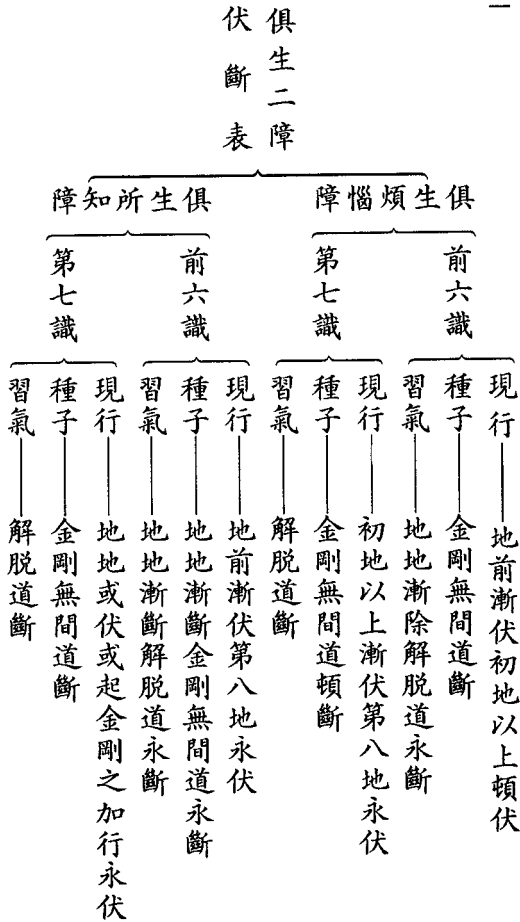 俱生二障
伏斷表
俱生煩惱障
前六識
現行
地前漸伏初地以上頓伏
種子
金剛無間道斷
習氣
地地漸除解脫道永斷
第七識
現行
初地以上漸伏第八地永伏
種子
金剛無間道頓斷
習氣
解脫道斷
俱生所知障
前六識
現行
地前漸伏第八地永伏
種子
地地漸斷金剛無間道永斷
習氣
地地漸斷解脫道永斷
第七識
現行
地地或伏或起金剛之加行永伏
種子
金剛無間道斷
習氣
解脫道斷